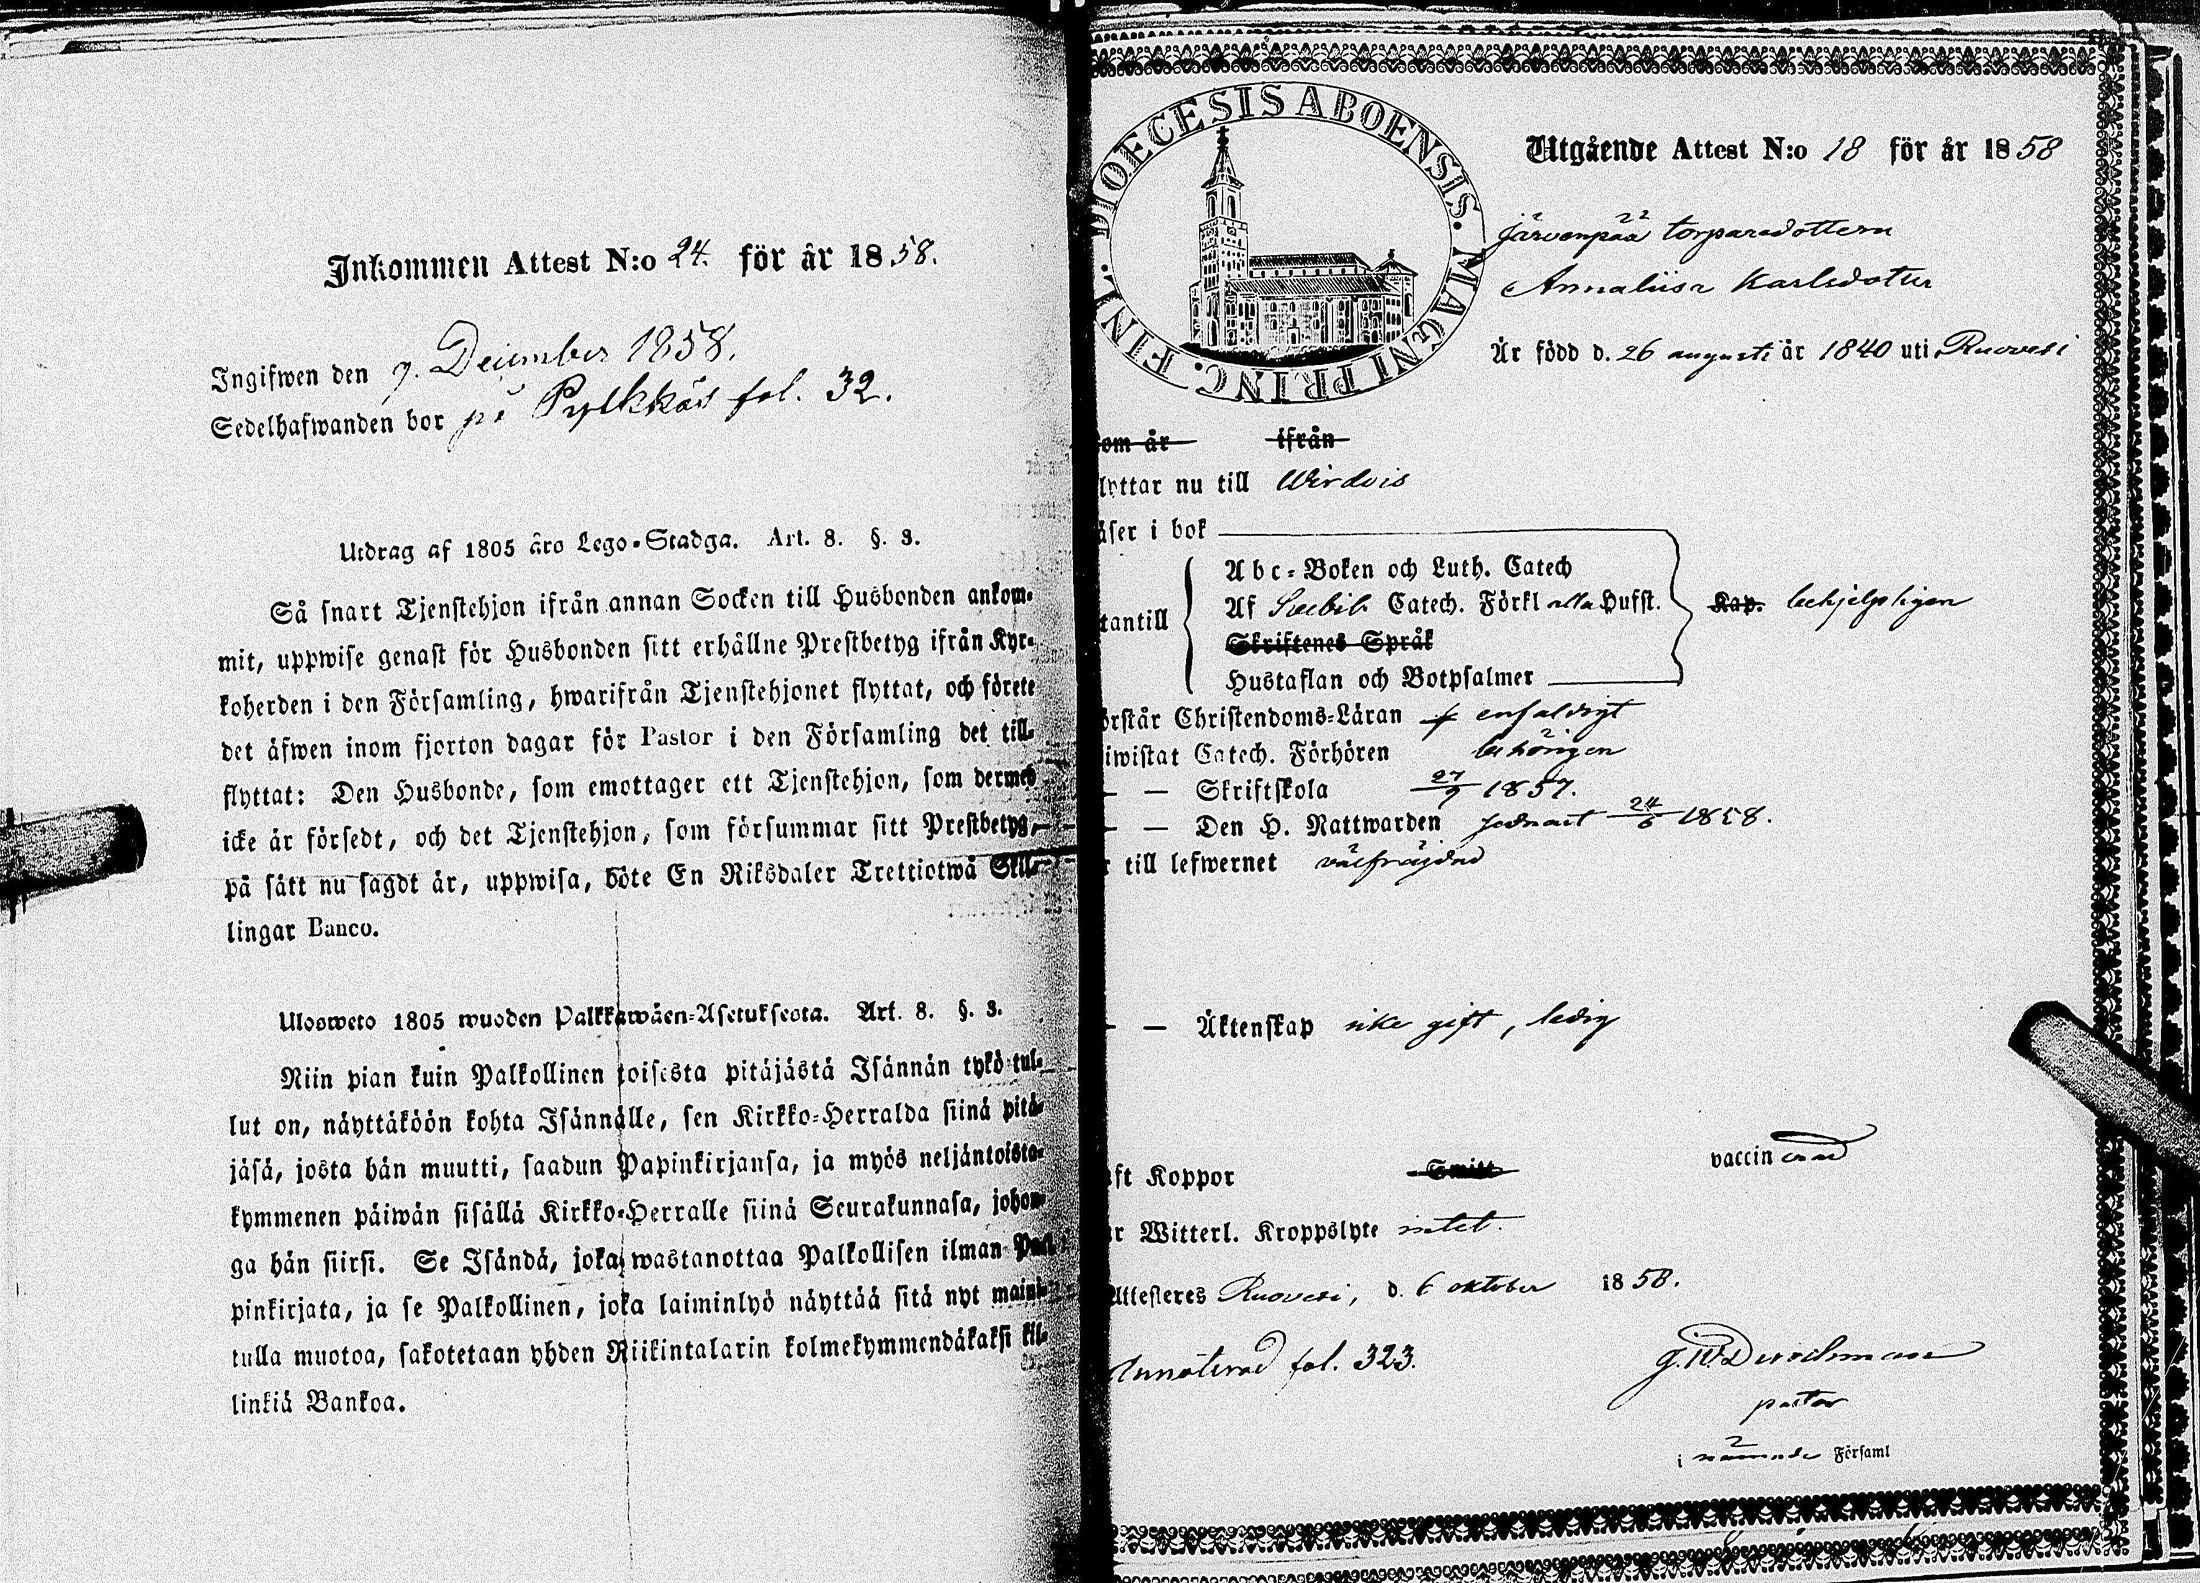 Inkommen Attest N:o 24. för år 1858.
Ingifwen den 9. December 1858.
Sedelhafwanden bor på Pylkkäs fol. 32.
Utdrag af 1805 års Lego-Stadga. Art. 8. §. 3.
Så snart Tjenstehjon ifrån annan Socken till Husbonden ankom-
mit, uppwise genast för Husbonden sitt erhållne Prestbetyg ifrån Kyr-
koherden i den Församling, hwarifrån Tjenstehjonet flyttat, och förete
det äfwen inom fjorton dagar för Pastor i den Församling det till-
flyttat: Den Husbonde, som emottager ett Tjenstehjon, som dermed
icke är försedt, och det Tjenstehjon, som försummar sitt Prestbetyg,
på sätt nu sagdt är, uppwisa, böte En Riksdaler Trettiotwå Skil-
lingar Banco.
Uloosweto 1805 wuoden Palkkawäen-Asetuksesta. Art. 8. §. 3.
Niin pian kuin Palkollinen toisesta pitäjästä Isännän tykö tul-
lut on, näyttäköön kohta Isännälle, sen Kirkko-Herralda siinä pitä-
jäsä, josta hän muutti, saadun Papinkirjansa, ja myös neljäntoista-
kymmenen päiwän sisällä Kirkko-Herralle siinä Seurakunnasa, johon-
ga hän siirsi. Se Isändä, joka wastanottaa Palkollisen ilman Pa-
pinkirjata, ja se Palkollinen, joka laiminlyö näyttää sitä nyt maini-
tulla muotoa, sakotetaan yhden Riikintalarin kolmekymmendäkaksi kil-
linkiä Bankoa.
DIOECESIS ABOENSIS. MAGNI PRINC. FINL.
Utgående Attest N:o 18 för år 1858
Järvenpää torparedottern
Annaliisa Karlsdotter
Är född d. 26 augusti år 1840 uti Ruovesi
om är ifrån
lyttar nu till Wirdois
äser i bok
tantill
Abc-Boken och Luth. Catech
Af Svebil. Catech. Förkl alla Hufst.
Skriftenes Språk
Hustaflan och Botpsalmer
Kap. behjelpligen
örstår Christendoms-Läran enfaldigt
iwistat Catech. Förhören behörigen
— — Skriftskola 27/9 1857.
— — Den H. Nattwarden sednast 24/6 1858.
r till lefwernet välfräjdad
— — Äktenskap icke gift, ledig
ft Koppor Smitt vaccinerad
r Witterl. Kroppslyte intet.
Attesteres Ruovesi, d. 6 oktober 1858.
Annoterad fol. 323.
pastor
i nämnde Församl